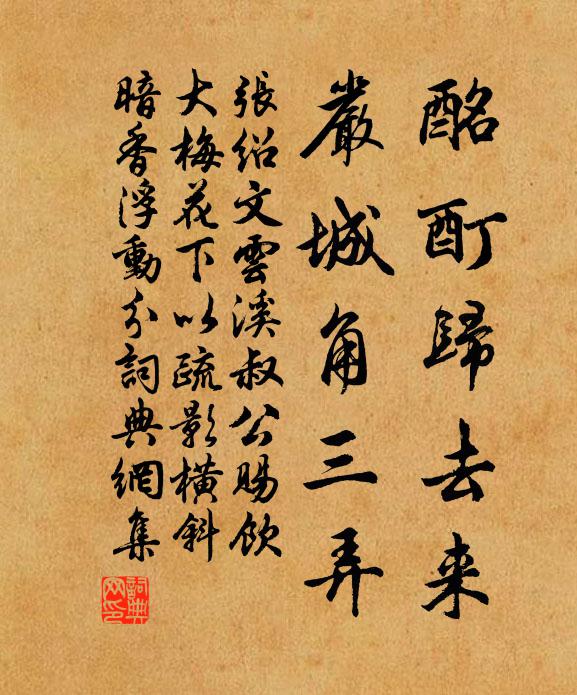 酩酊歸去来
嚴城角三弄
張紹文雲溪叔公賜飲
大梅花下以疏影橫斜
暗香浮動分詞典網集